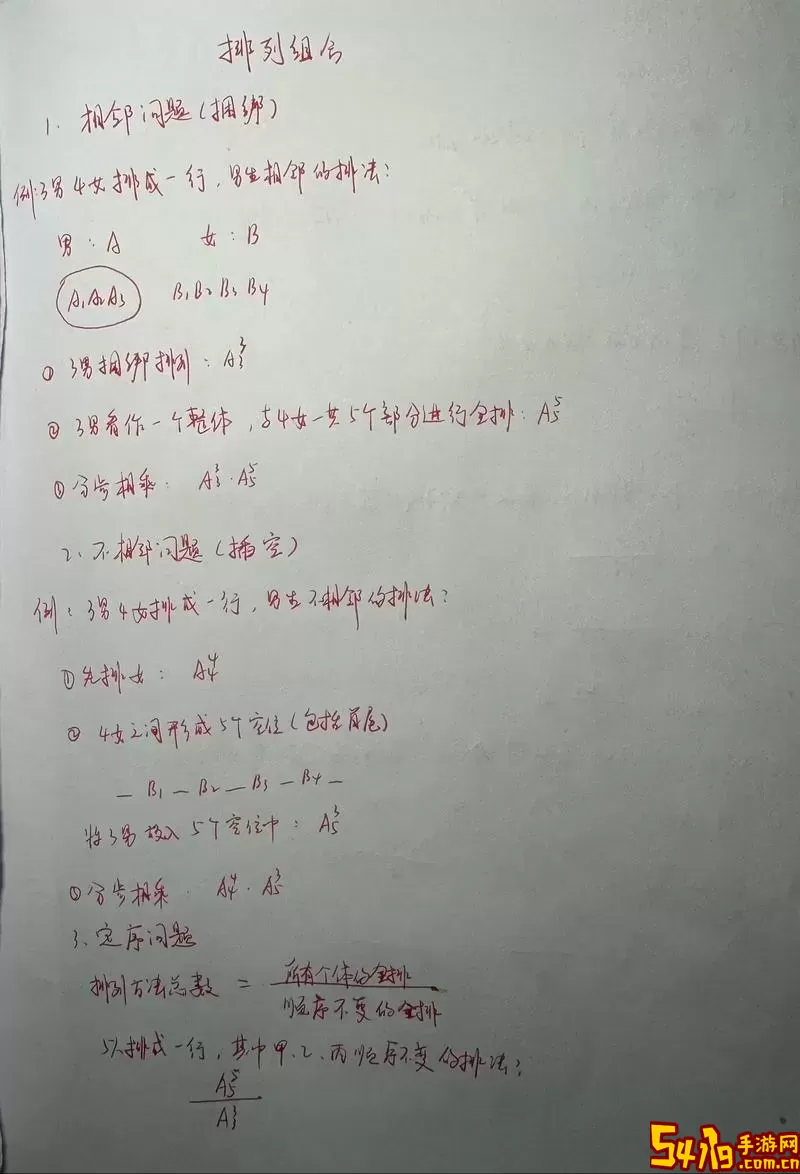 排列组合
1. 相邻问题(捆绑)
例:3男4女排成一行,男生相邻的排法:
男:A 女:B
A₁A₂A₃ B₁B₂B₃B₄
① 3男捆绑排列:A₃³
② 3男看作一个整体,与4女一共5个部分进行全排:A₅⁵
③ 分步相乘:A₃³·A₅⁵
2、不相邻问题(插空)
例:3男4女排成一行,男生不相邻的排法:
① 先排女:A₄⁴
② 4女之间形成5个空位(包括首尾)
_ B₁ _ B₂ _ B₃ _ B₄ _
将3男放入5个空位中:A₅³
③ 分步相乘:A₄⁴·A₅³
3、定序问题
排列方法总数 = 所有个体的全排
顺序不变的全排
5人排成一行,其中甲、乙、丙顺序不变的排法:
A₅⁵
A₃³
5479手游网
.com.cn